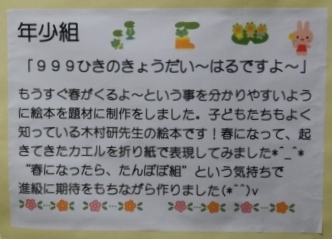 年少組
「999ひきのきょうだい～はるですよ～」
もうすぐ春がくるよ～という事を分かりやすいよう
に絵本を題材に制作をしました。子どもたちもよく
知っている木村研先生の絵本です！春になって、起
きてきたカエルを折り紙で表現してみました*^_^*
“春になったら、たんぽぽ組”という気持ちで
進級に期待をもちながら作りました(*^^)v